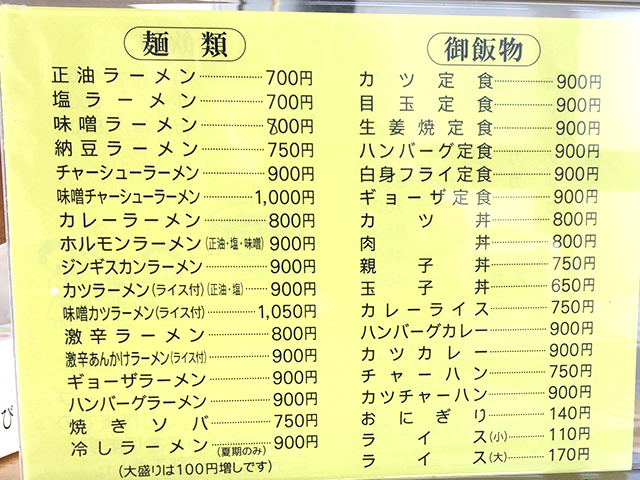 麺類
正油ラーメン…………700円
塩ラーメン…………700円
味噌ラーメン…………700円
納豆ラーメン…………750円
チャーシューラーメン…………900円
味噌チャーシューラーメン…………1,000円
カレーラーメン…………800円
ホルモンラーメン(正油・塩・味噌) 900円
ジンギスカンラーメン…………900円
カツラーメン(ライス付)(正油・塩)…900円
味噌カツラーメン(ライス付)…………1,050円
激辛ラーメン…………800円
激辛あんかけラーメン(ライス付)…………900円
ギョーザラーメン…………900円
ハンバーグラーメン…………900円
焼きソバ…………750円
冷しラーメン(夏期のみ)…………900円
(大盛りは100円増しです)
御飯物
カツ定食…………900円
目玉定食…………900円
生姜焼定食…………900円
ハンバーグ定食…………900円
白身フライ定食…………900円
ギョーザ定食…………900円
カツ丼…………800円
肉丼…………800円
親子丼…………750円
玉子丼…………650円
カレーライス…………750円
ハンバーグカレー…………900円
カツカレー…………900円
チャーハン…………750円
カツチャーハン…………900円
おにぎり…………140円
ライス(小)…………110円
ライス(大)…………170円
び